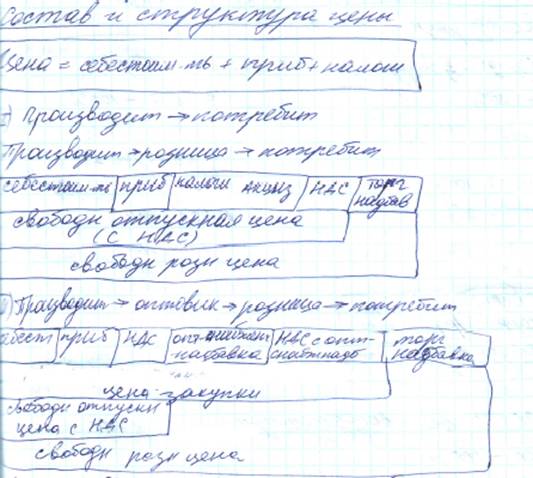 Состав и структура цены
Цена = себестоим-ть + приб + налоги
Производит → потребит
Производит → розница → потребит
себестоим-ть приб налоги акциз НДС торг надбав
свободн отпускная цена
(с НДС)
свободн розн цена
Производит → оптовик → розница → потребит
себест приб НДС опт- надбавка НДС с опт- торг надбавка
цена закупки
свободн отпускн
цена с НДС
свободн розн цена